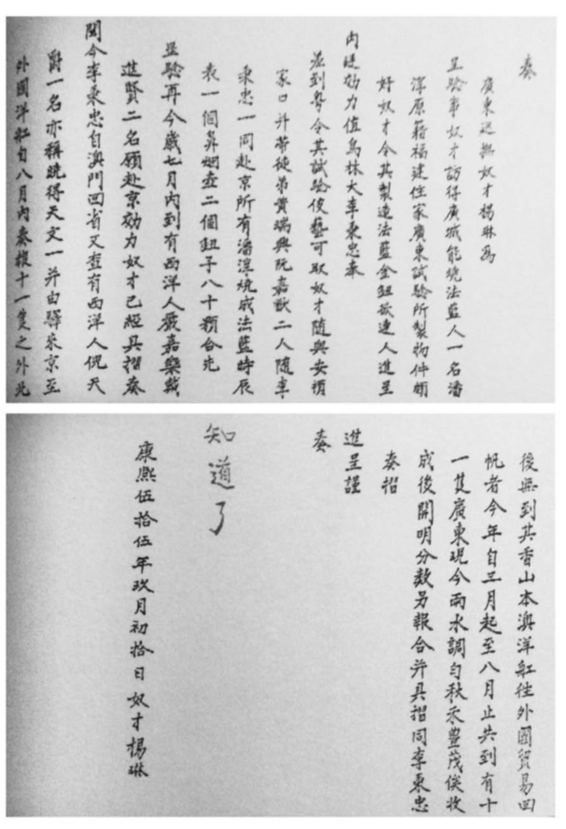 奏
廣東巡撫奴才楊琳為
呈驗事奴才訪得廣城能燒法藍人一名潘
淳原籍福建住家廣東試驗所製物件頗
好奴才令其製造法藍金鈕欲連人進呈
內廷効力值烏林大李秉忠奉
差到粵令其試驗伎藝可取奴才隨與安頓
家口并帶徒弟黃瑞興阮嘉猷二人隨李
秉忠一同赴京所有潘淳燒成法藍時辰
表一個鼻烟壺二個鈕子八十顆合先
呈驗再今歲七月內到有西洋人嚴嘉樂戴
進賢二名願赴京効力奴才已經具摺奏
聞今李秉忠自澳門回省又查有西洋人倪天
爵一名亦稱曉得天文一并由驛來京至
外國洋舡自八月內奏報十一隻之外此
後無到其香山本澳洋舡往外國貿易回
帆者今年自三月起至八月止共到有十
一隻廣東現今雨水調勻秋禾豐茂俟收
成後開明分數另報合并具摺同李秉忠
奏摺
進呈謹
奏
知道了
康熙伍拾伍年玖月初拾日奴才楊琳